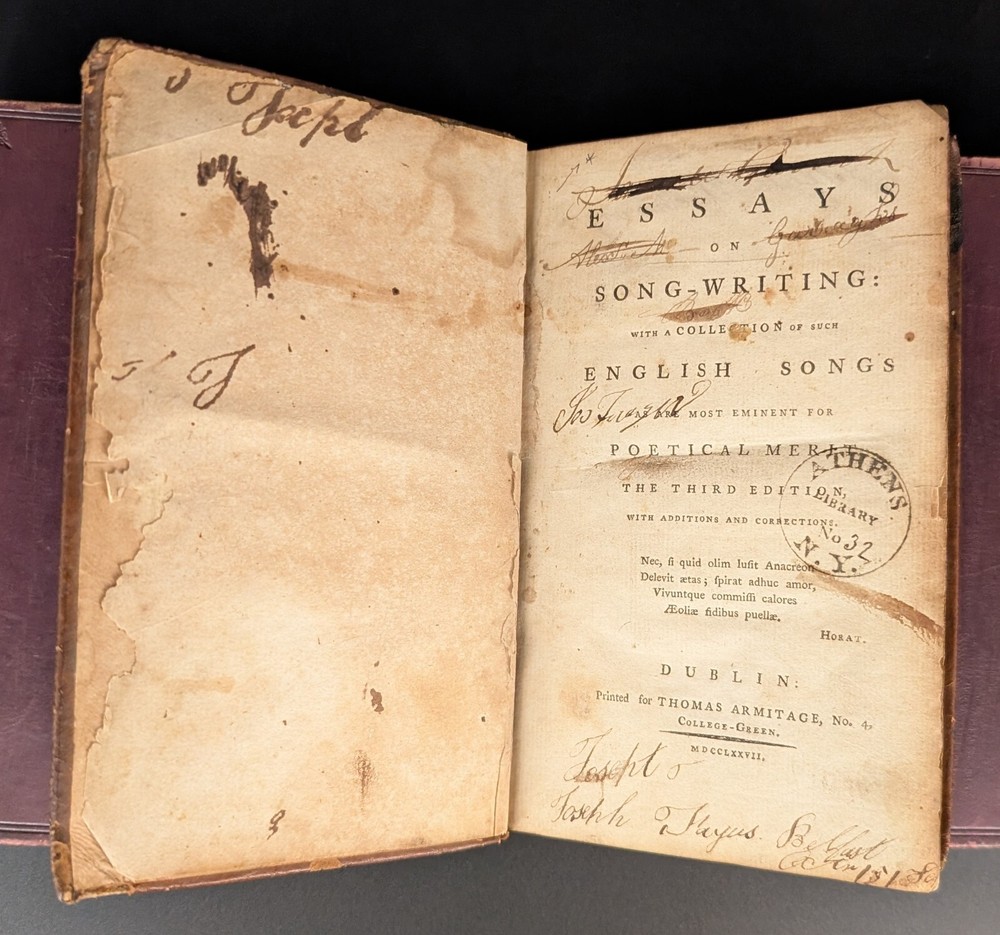 Joseph
ESSAYS
ON
SONG-WRITING:
WITH A COLLECTION OF SUCH
ENGLISH SONGS
AS ARE MOST EMINENT FOR
POETICAL MERIT.
THE THIRD EDITION,
WITH ADDITIONS AND CORRECTIONS.
ATHENS
LIBRARY
No 32
N.Y.
Nec, ſi quid olim luſit Anacreon
Delevit ætas; ſpirat adhuc amor,
Vivuntque commiſſi calores
Æoliæ fidibus puellæ.
HORAT.
DUBLIN:
Printed for THOMAS ARMITAGE, No. 4,
COLLEGE-GREEN.
MDCCLXXVII.
Joseph
Joseph Belfast